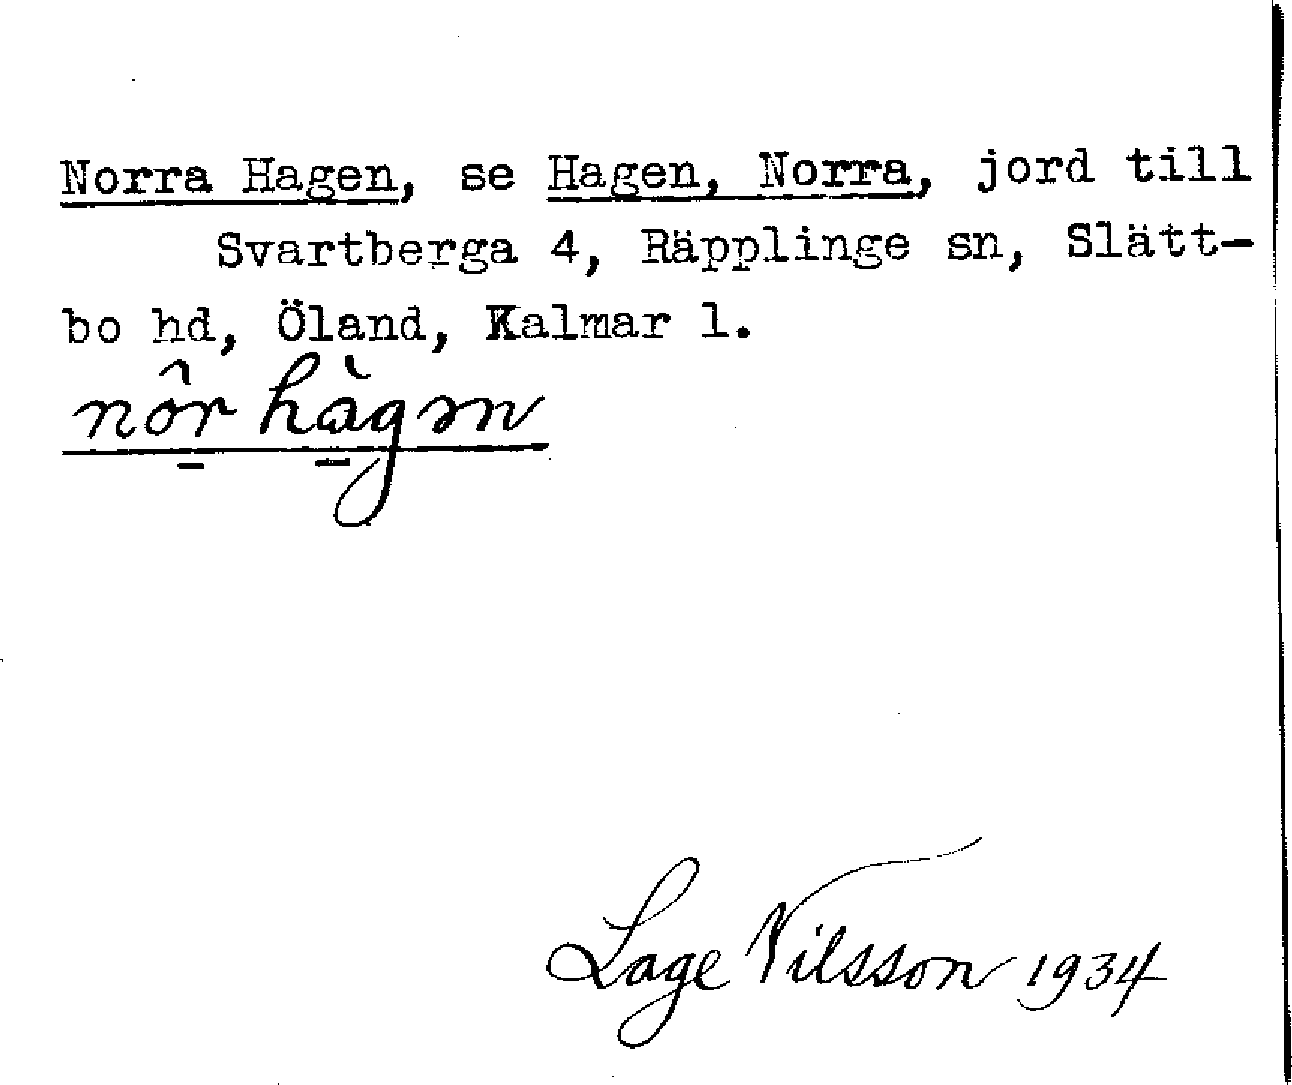 Norra Hagen, se Hagen, Norra, jord till
Svartberga 4, Räpplinge sn, Slätt-
bo hd, Öland, Kalmar l.
nôr hàgən
Lage Nilsson 1934